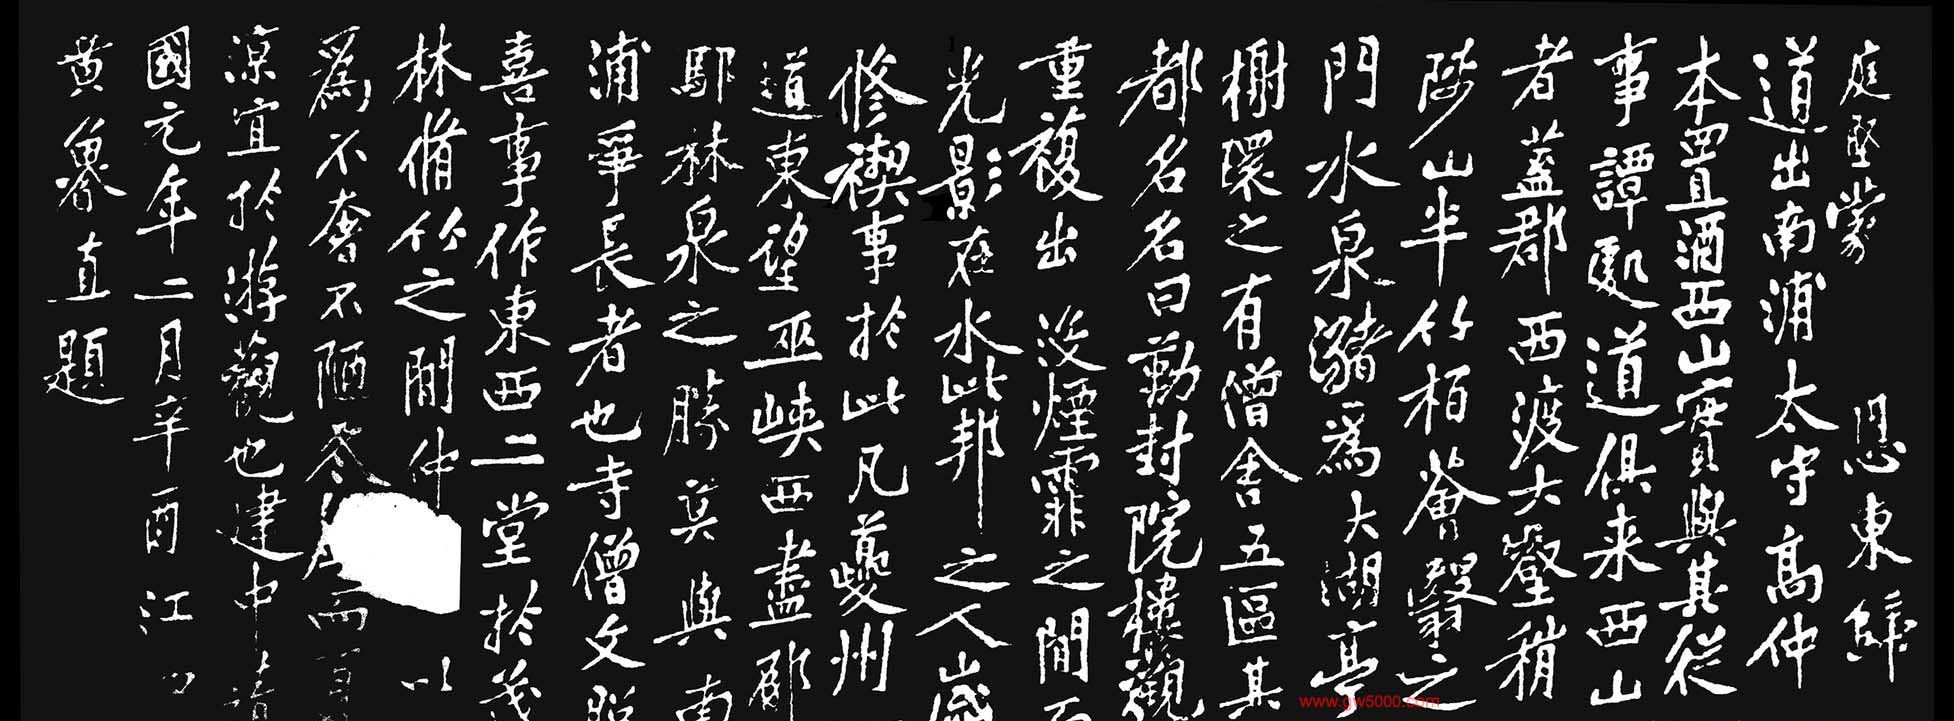 庭堅蒙恩東歸
道出南浦太守高仲
本置酒西山實與其從
事譚處道俱来西山
者蓋郡西渡大壑稍
陟山半竹栢薈翳之
門水泉瀦爲大湖亭
榭環之有僧舍五區其
都名名曰勤封院樓觀
重複出没煙霏之間而
光影在水此邦之人歲
修禊事於此凡夔州
道東望巫峽西盡郁
鄢林泉之勝莫與南
浦爭長者也寺僧文照
喜事作東西二堂於茂
林脩竹之間仲以
爲不奢不陋冬而夏
涼宜於游觀也建中靖
國元年二月辛酉江
黄魯直題
www.gw5000.com